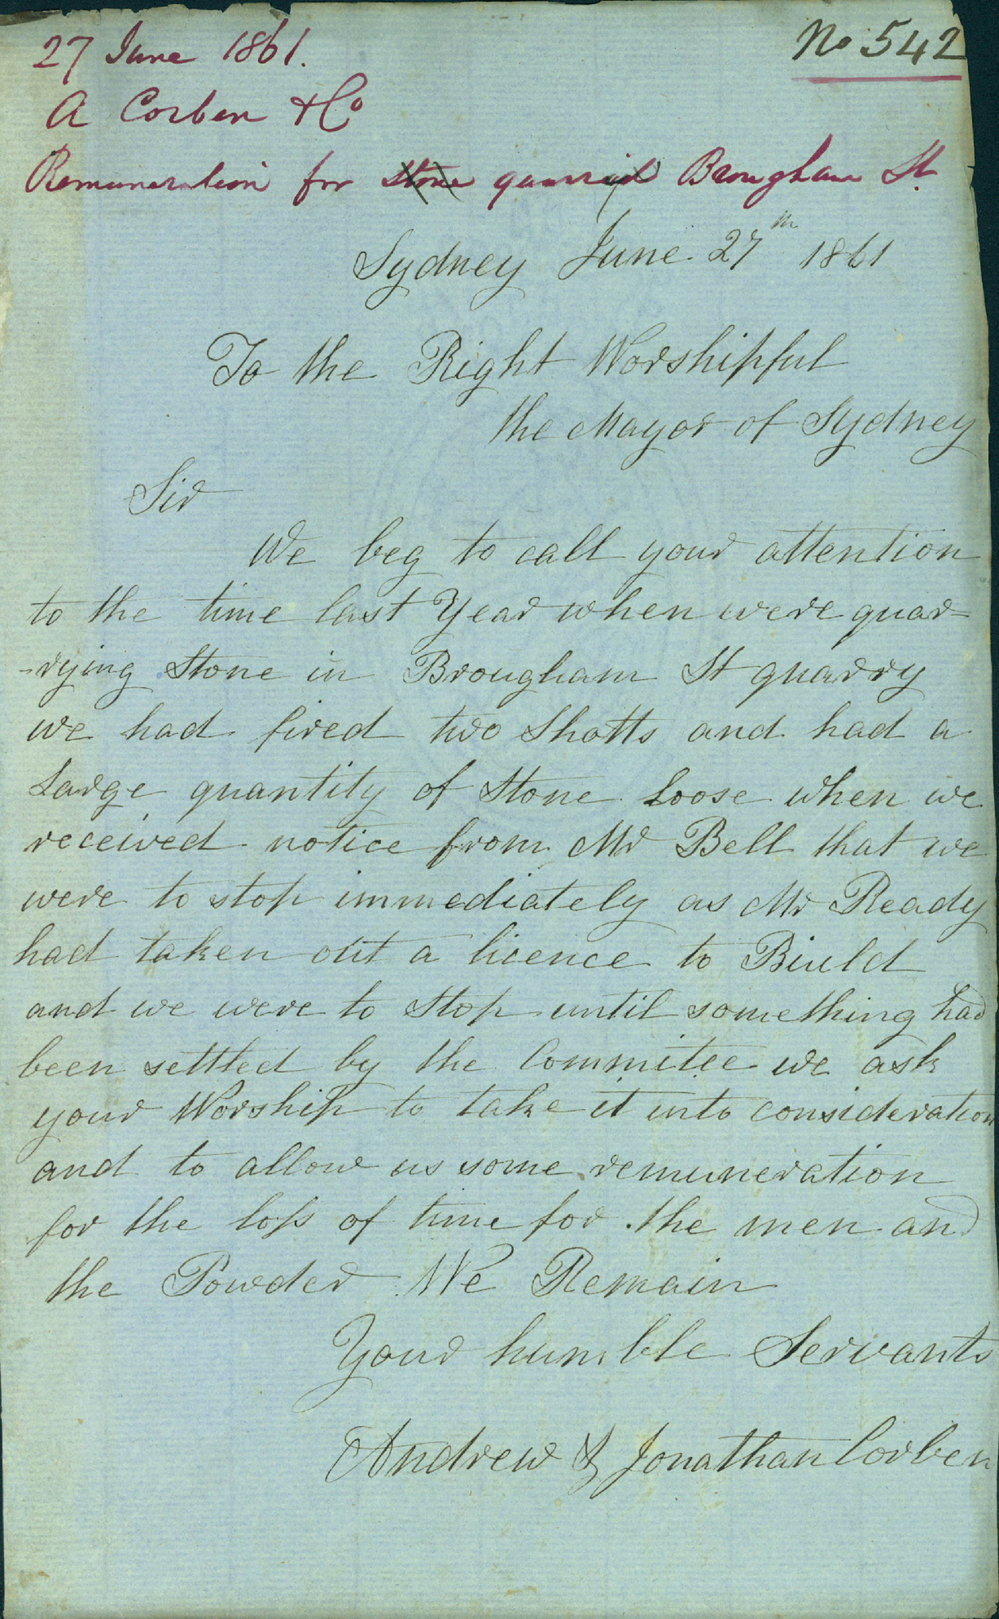 27 June 1861.
No 542
A Corben & Co
Remuneration for Stone quarried Brougham St
Sydney June 27th 1861
To the Right Worshipful
the Mayor of Sydney
Sir
We beg to call your attention
to the time last Year when were quar-
-rying Stone in Brougham St quarry
we had fired two Shotts and had a
Large quantity of Stone Loose when we
received notice from Mr Bell that we
were to stop immediately as Mr Ready
had taken out a licence to Biuld
and we were to Stop until something had
been settled by the Committee we ask
your Worship to take it into consideration
and to allow us some remuneration
for the loss of time for the men and
the Powder We Remain
Your humble Servants
Andrew & Jonathan Corben